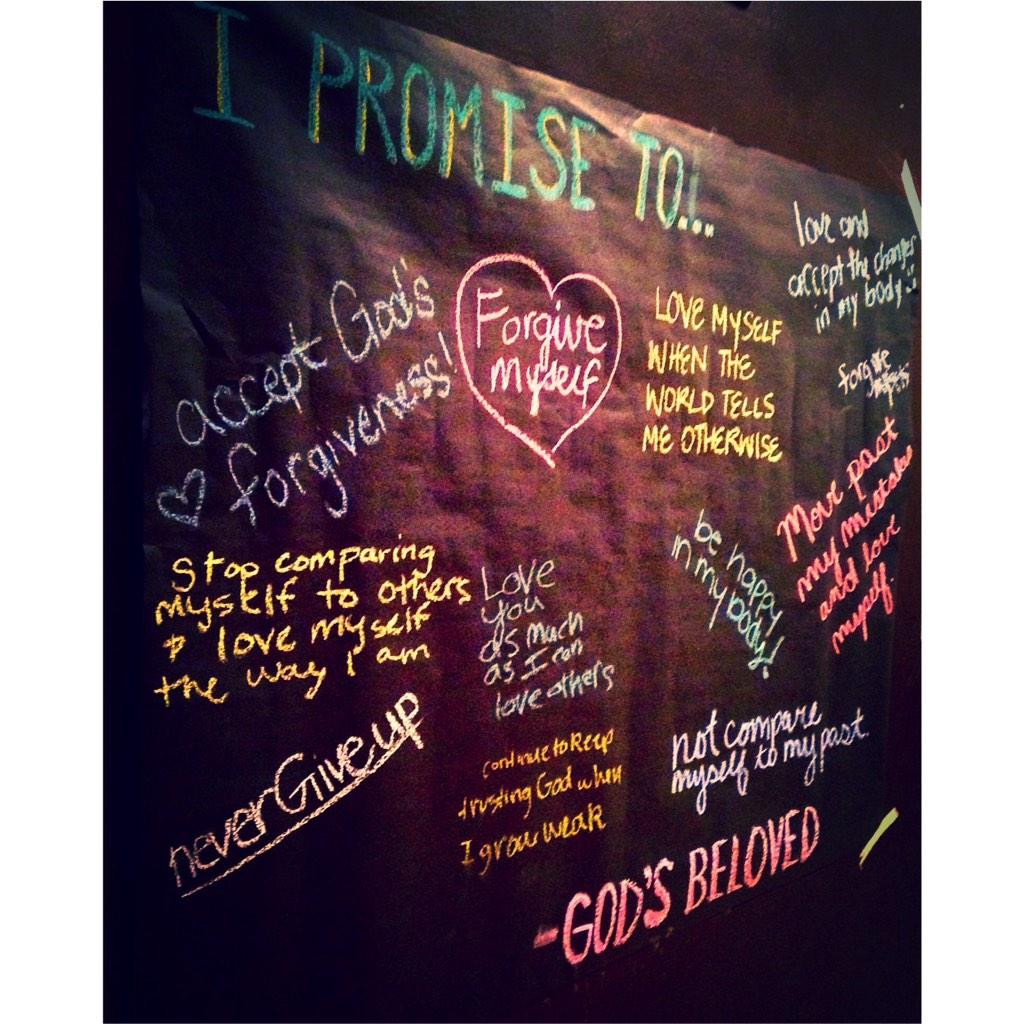 I PROMISE TO...
accept God's
forgiveness!
Forgive
Myself
LOVE MYSELF
WHEN THE
WORLD TELLS
ME OTHERWISE
love and
accept the changes
in my body
forgive
Move past
my mistakes
and love
myself.
be happy
in my body!
Stop comparing
myself to others
+ love myself
the way I am
Love
you
as much
as I can
love others
never Give up
continue to keep
trusting God when
I grow weak
not compare
myself to my past.
-GOD'S BELOVED